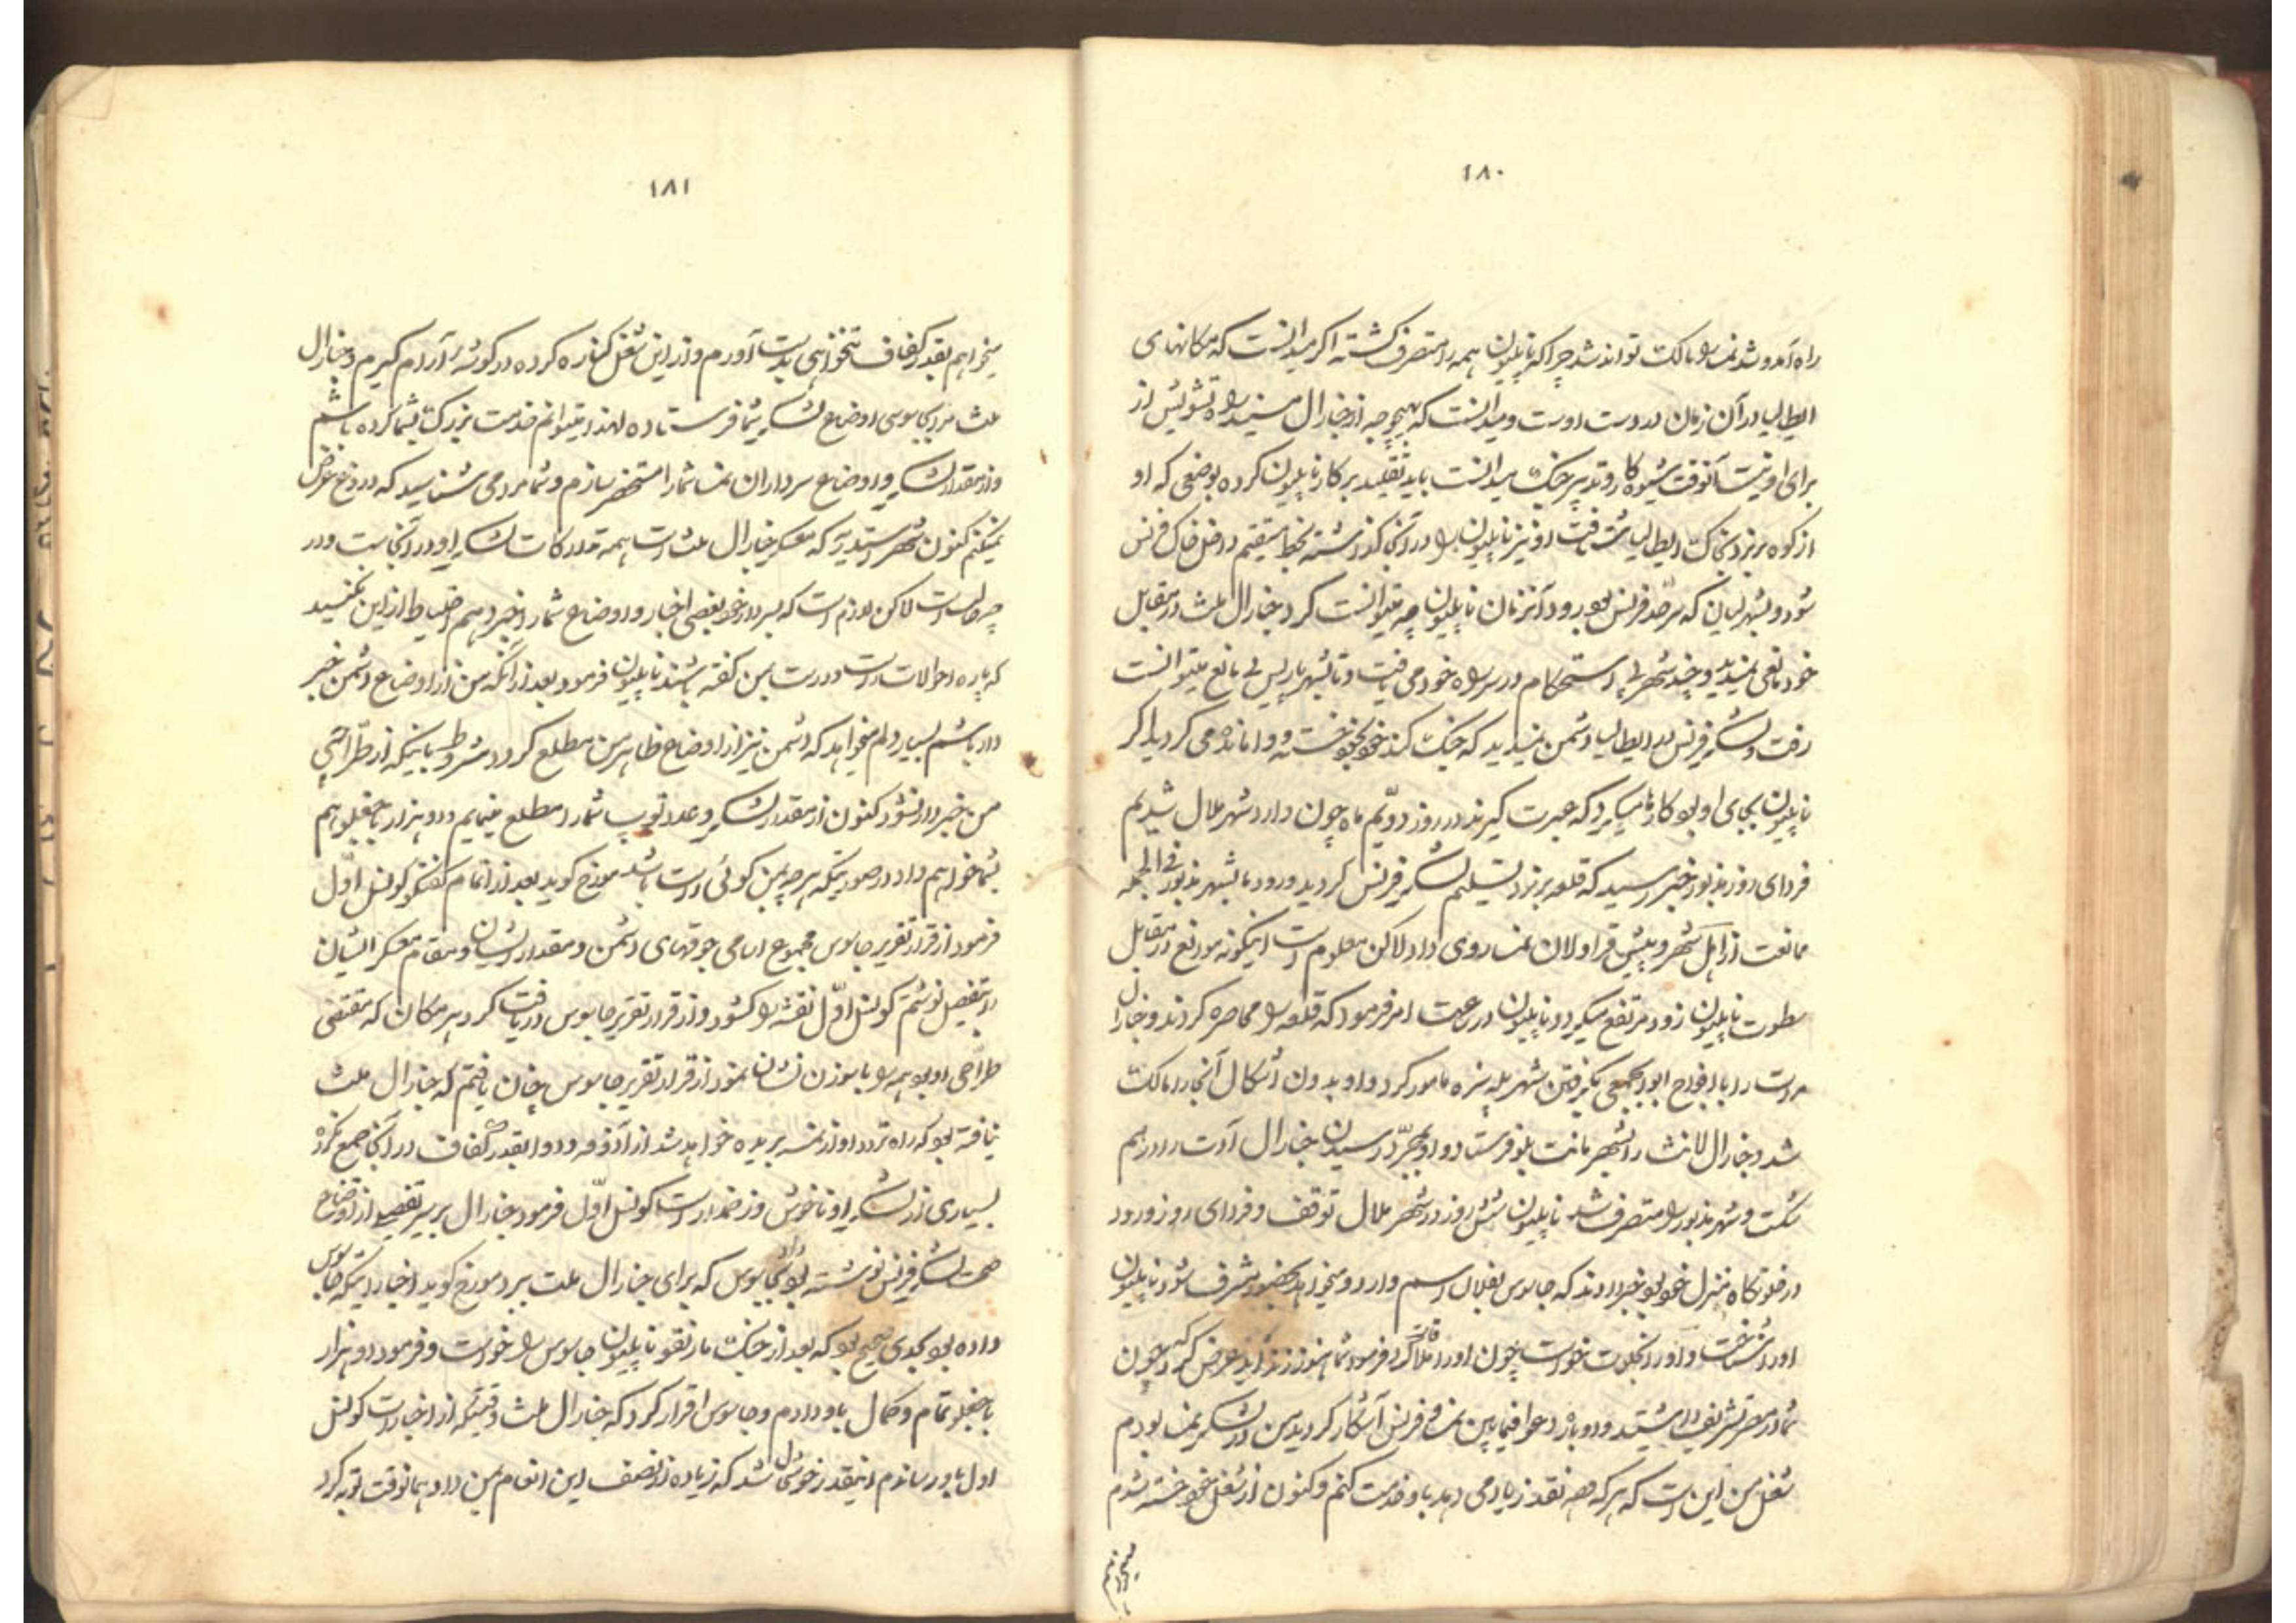 ۱۸۰
راه آمد و شد نمسه را مالک تواند شد چرا که ناپلیون همه را متصرف گشته اگر میدانست که مکانهای
ایطالیا در آن زمان در دست اوست و میدانست که بهیچوجه از جنارال مسنه راه تشویش از
برای او نیست آنوقت شیوه کار و تدبیر جنک میدانست باید تقلید بر کار ناپلیون کرده بوضعی که او
از کوه برنرد بخاک ایطالیا شتافت او نیز ناپلیون را در آنجا گذاشته بخط مستقیم داخل خاک فرنس
شود و بشهر لیان که سرحد فرنس بود برود آنزمان ناپلیون چه میتوانست کرد جنارال ملث در مقابل
خود مانعی نمیدید و چند شهر بی استحکام در سر راه خود می یافت و تا شهر پاریس بی مانع میتوانست
رفت و لشکر فرنس در ایطالیا دشمن نمیدید که جنک کند خود بخود خسته و وامانده می گردید اگر
ناپلیون بجای او بود کارها میکرد که عبرت گیرند در روز دویم ماه چون وارد شهر ملال شدیم
فردای روز مذبور خبر رسید که قلعه برنرد تسلیم لشکر فرنس گردید ورود ما بشهر مذبور فی الجمله
ممانعت از اهل شهر و پیش قراولان نمسه روی داد لاکن معلوم است اینگونه موانع در مقابل
سطوت ناپلیون زود مرتفع میگردد ناپلیون در ساعت امر فرمود که قلعه را محاصره کردند و جنارال
مرت را با افواج ابوابجمعی بگرفتن شهر پله پنزه مامور کرد و او بدون اشکال آنجا را مالک
شد و جنارال لانش را بشهر مانت بلو فرستاد و او بمجرد رسیدن جنارال آدت را در هم
شکست و شهر مذبور را متصرف شد ناپلیون شش روز در شهر ملال توقف و فردای روز ورود
در خلوتگاه منزل خود بود خبر دادند که جاسوس بفلان اسم وارد و میخواهد بحضور مشرف شود ناپلیون
او را شناخت و او را بخلوت خواست چون او را ملاقات کرد فرمود شما هنوز زنده اید عرض کرد که چون
شما در مصر تشریف داشتید و دوباره دعوا فیمابین نمسه و فرنس آشکار گردید من در لشکر نمسه بودم
شغل من این است که هر که وجه نقد زیاد می دهد باو خدمت کنم و کنون از شغل خود خسته شدم
میخواهم
۱۸۱
میخواهم بقدر کفاف تنخواهی بدست آورم و از این شغل کناره کرده در گوشه آرام گیرم و جنارال
ملث مرا بجاسوسی اوضاع لشکر شما فرستاده لهذا میتوانم خدمت بزرک بشما کرده باشم
و از مقدار لشکر و اوضاع سرداران نمسه شما را مستحضر سازم و شما مرا می شناسید که دروغ عرض
نمیکنم کنون شهر استدیه که معسکر جنارال ملث است همه تدارکات لشکر او در آنجاست و در
چه حالت است لاکن لازم است که بسردار خود بعضی اخبار و اوضاع شما را خبر دهم احتیاط از این نکنید
که پاره احوالات راست و درست بمن گفته باشند ناپلیون فرمود بعد از آنکه من از اوضاع دشمن خبر
دار باشم بسیار دلم میخواهد که دشمن نیز از اوضاع ظاهر من مطلع گردد مشروط باینکه از طراحی
من خبردار نشود کنون از مقدار لشکر و عدد توپ شما را مطلع مینمایم و دو هزار باجغلو هم
بشما خواهم داد در صورتیکه هرچه بمن گوئی راست باشد مورخ گوید بعد از اتمام گفتگو کونسل اول
فرمود از قرار تقریر جاسوس مجموع اسامی جوقهای دشمن و مقدار ایشان و مقام معسکر ایشان
را بتفصیل نوشتم کونسل اول نقشه را کشود و از قرار تقریر جاسوس دریافت کرد هر مکان که مقتضی
طراحی او بود همه را با سوزن نشان نمود از قرار تقریر جاسوس چنان یافتم که جنارال ملث
نیافته بود که راه تردد او از نمسه بریده خواهد شد از آذوقه و دوا بقدر کفاف در آنجا جمع نکرده
بسیاری از لشکر او ناخوش و زخمدار است کونسل اول فرمود جنارال بریر تفصیل از اوضاع
صحت لشکر فرنس نوشته بود داد بجاسوس که برای جنارال ملث ببرد مورخ گوید اخباراتیکه جاسوس
داده بود بحدی صحیح بود که بعد از جنک مارنقو ناپلیون جاسوس را خواست و فرمود دو هزار
باجغلو تمام و کمال باو دادم و جاسوس اقرار کرد که جنارال ملث وقتیکه از اخبارات کونسل
اول باو رساندم اینقدر خوشدل شد که زیاده از نصف این انعام بمن داد همانوقت توبه کرد